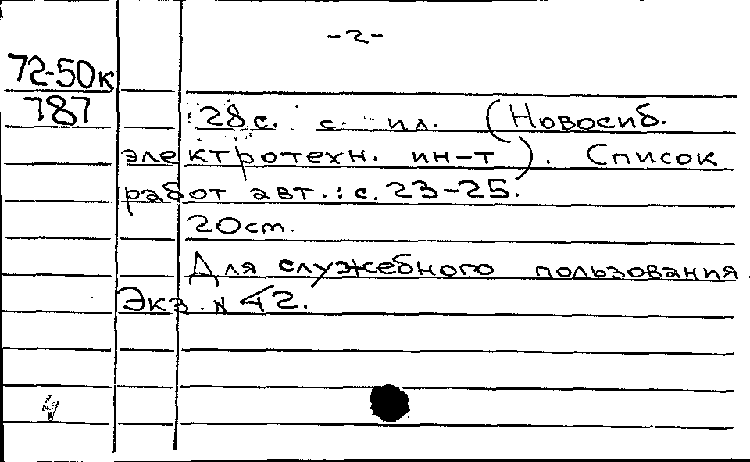 -2-
72-50к
787
28с. с ил. (Новосиб.
электротехн. ин-т). Список
работ авт.: с. 23-25.
20см.
Для служебного пользования.
Экз. № 42.